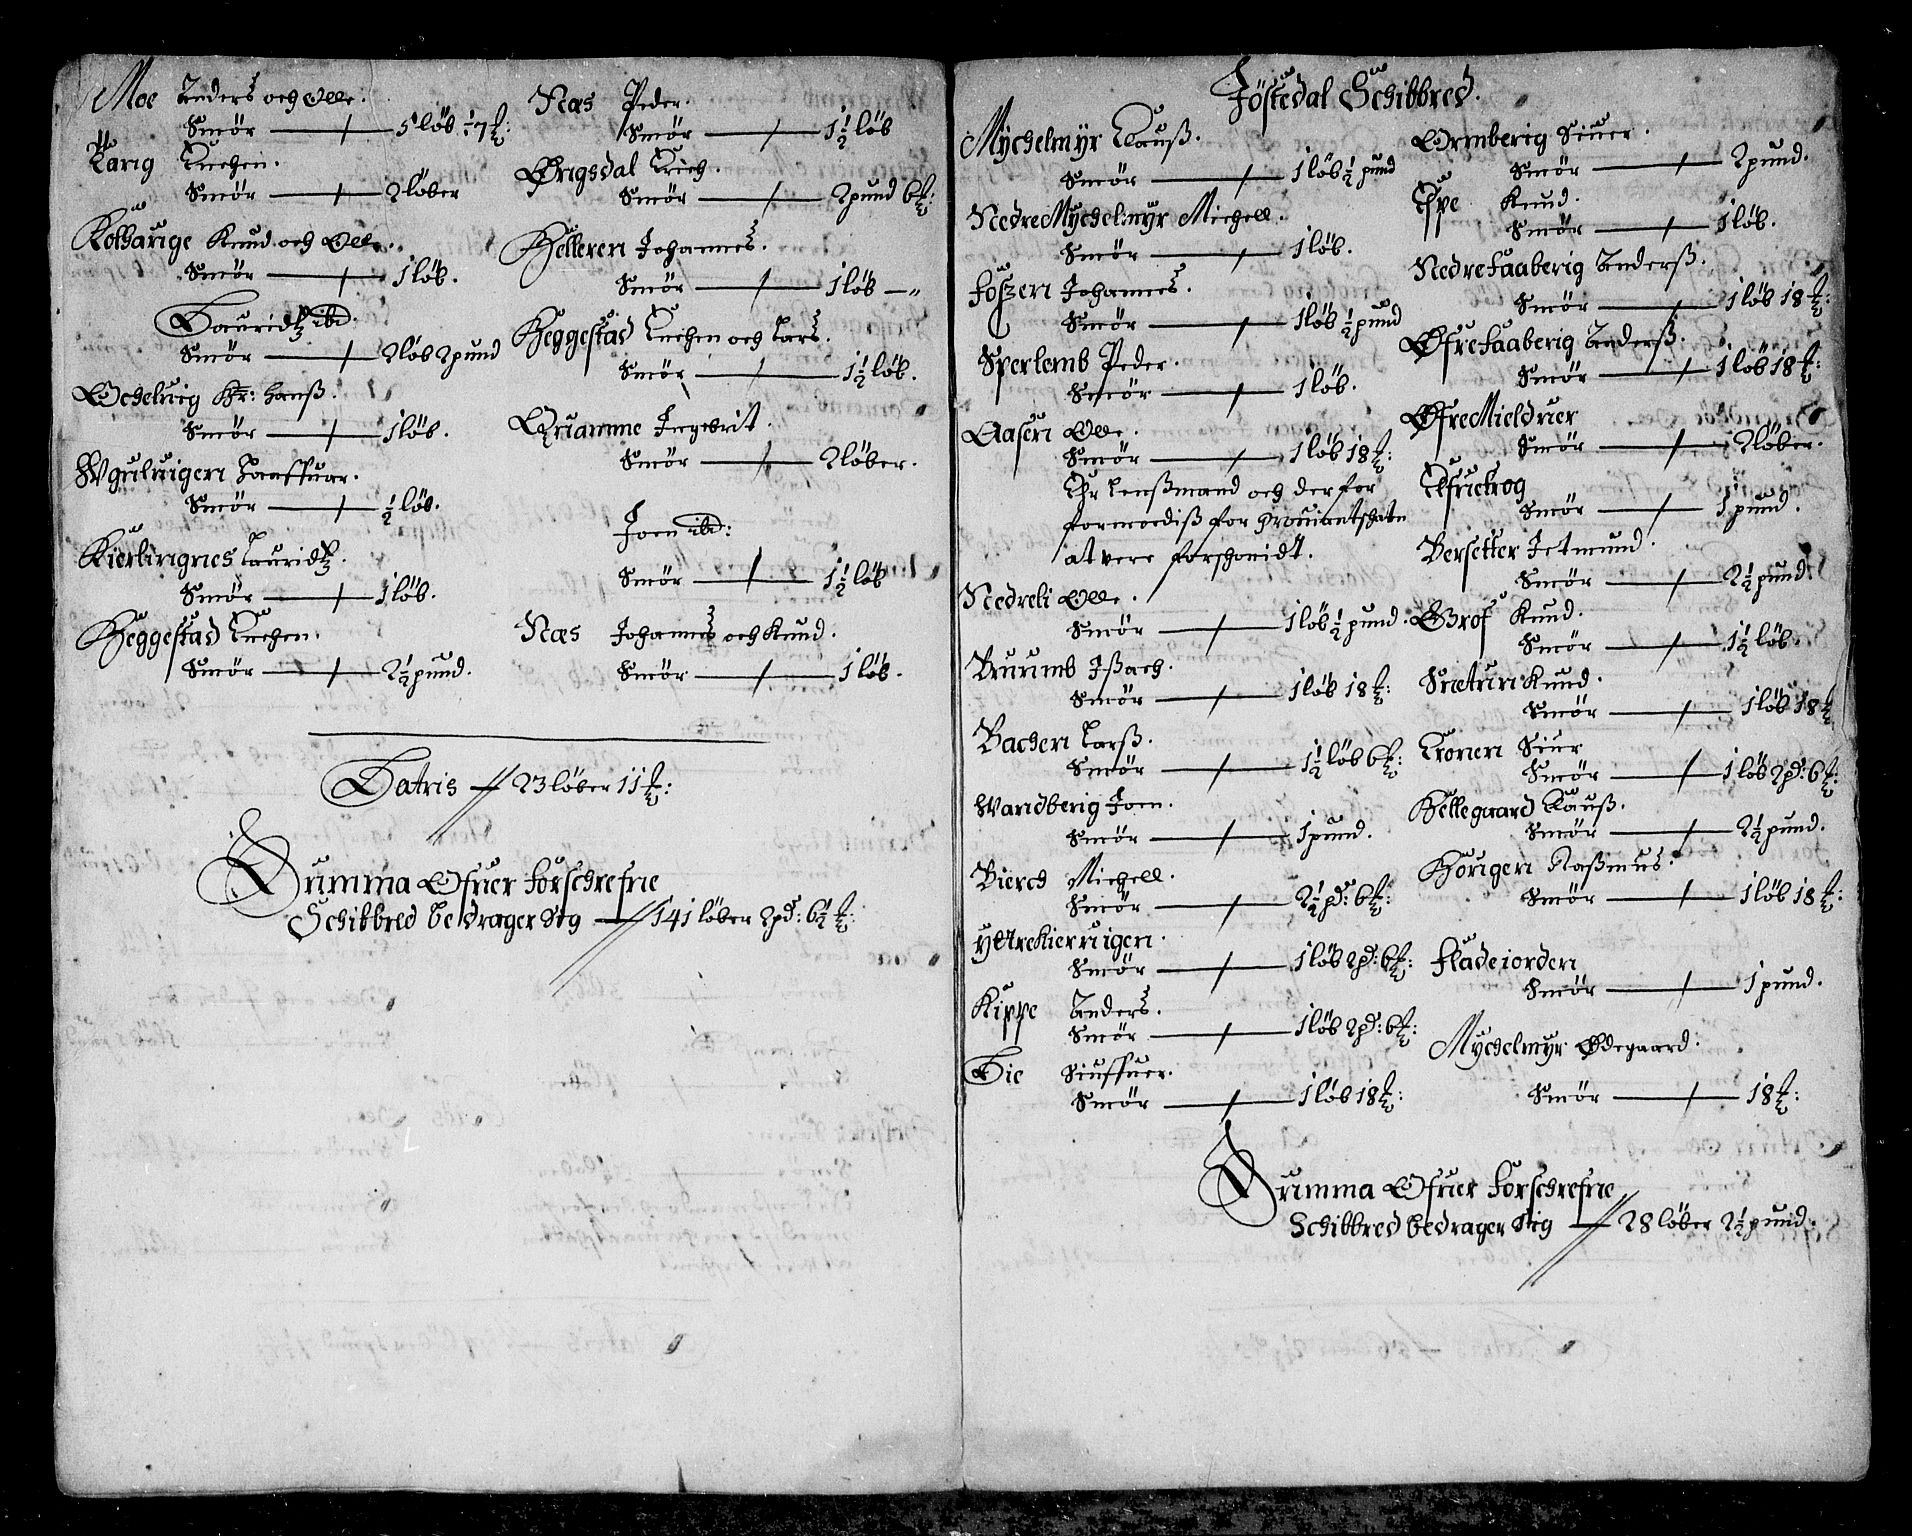 Moe Anders och Olle.
Smör 5 löb 17 ℔:
Tarig Tuchen.
Smör 2 löber
Kolharige Knud och Olle.
Smör 1 löb.
Lauridtz ibd:
Smör 2 löb 2 pund
Ocheluig Hr: Hanß.
Smör 1 löb.
Smör ½ löb.
Kierlingnes Lauridtz.
Smör 1 löb.
Heggestad Tuchen.
Smör 2½ pund.
Næs Peder.
Smör 1½ löb
Ørigsdal Erich.
Smör 2 pund 6 ℔:
Helleren Johannes.
Smör 1 löb
Heggestad Tuchen och Lars.
Smör 1½ löb.
Quamme Ingebrit.
Smör 2 löber.
Joen ibd:
Smör 1½ löb
Næs Johannes och Knud.
Smör 1 löb.
Latris 23 löber 11 ℔:
Summa Ofuer forschrefne
Schibbred bedrager sig 141 löber 2 pd: 6½ ℔:
Jöstedal Schibbred.
Mychelmyr Clauß.
Smör 1 löb ½ pund
Nedre Mychelmyr Michell.
Smör 1 löb.
Foszen Johannes.
Smör 1 löb ½ pund
Sperlemb Peder.
Smör 1 löb.
Aasen Olle.
Smör 1 löb 18 ℔:
Er lenßmand och derfor
formoediß for prouiantschatn
at vere forschonidt.
Nedreli Olle.
Smör 1 löb ½ pund.
Bruumb Ißach.
Smör 1 löb 18 ℔:
Bachen Larß.
Smör 1½ löb 6 ℔:
Vandberig Joen.
Smör 1 pund.
Bierch Michell.
Smör 2½ pd: 6 ℔:
Yttre Kieruigen.
Smör 1 löb 2 pd: 6 ℔:
Kippe Anders.
Smör 1 löb 2 pd: 6 ℔:
Lie Siuffuer.
Smör 1 löb 18 ℔:
Ormberig Siuer.
Smör 2 pund.
Espe Knud.
Smör 1 löb.
Nedre Faaberig Anderß.
Smör 1 löb 18 ℔:
Øfre Faaberig Anderß.
Smör 1 löb 18 ℔:
Øfre Mieldruer
Smör 2 löber.
Elfuekrog
Smör 1 pund.
Bersetter Jetmund.
Smör 2½ pund
Grof Knud.
Smör 1½ löb.
Snetun Knud.
Smör 1 löb 18 ℔
Cronen Siur
Smör 1 löb 2 pd: 6 ℔:
Hellegaard Clauß.
Smör 2½ pund.
Hougen Raßmus.
Smör 1 löb 18 ℔:
Fladeiorden
Smör 1 pund.
Mychelmyr Ødegaard.
Smör 18 ℔:
Summa Ofuer forschrefne
Schibbred bedrager sig 28 löber 2½ pund.